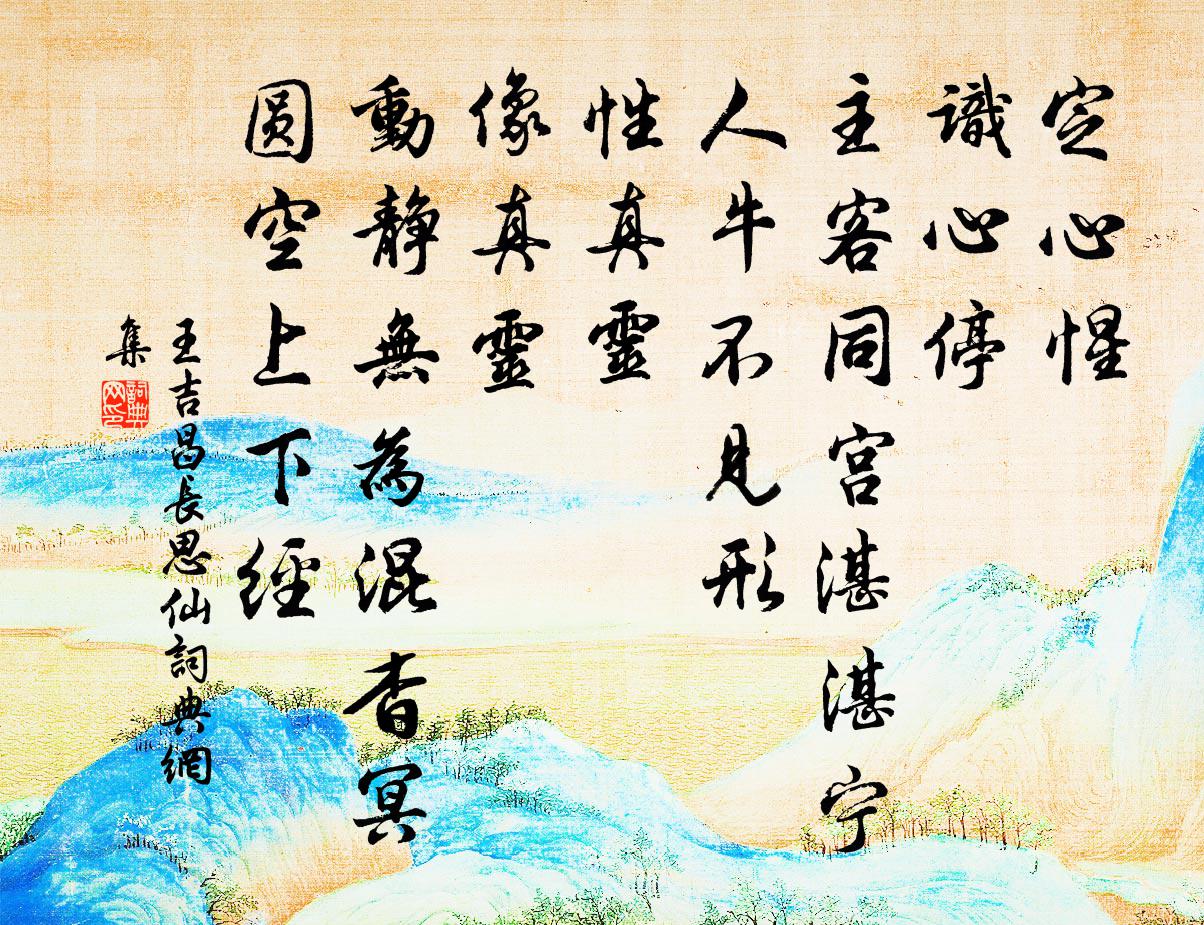 定心惺
識心停
主客同宫湛湛宁
人牛不見形
性真靈
像真靈
動静無為混杳冥
圓空上下經
王吉昌長思仙詞典網
集
詞典网印